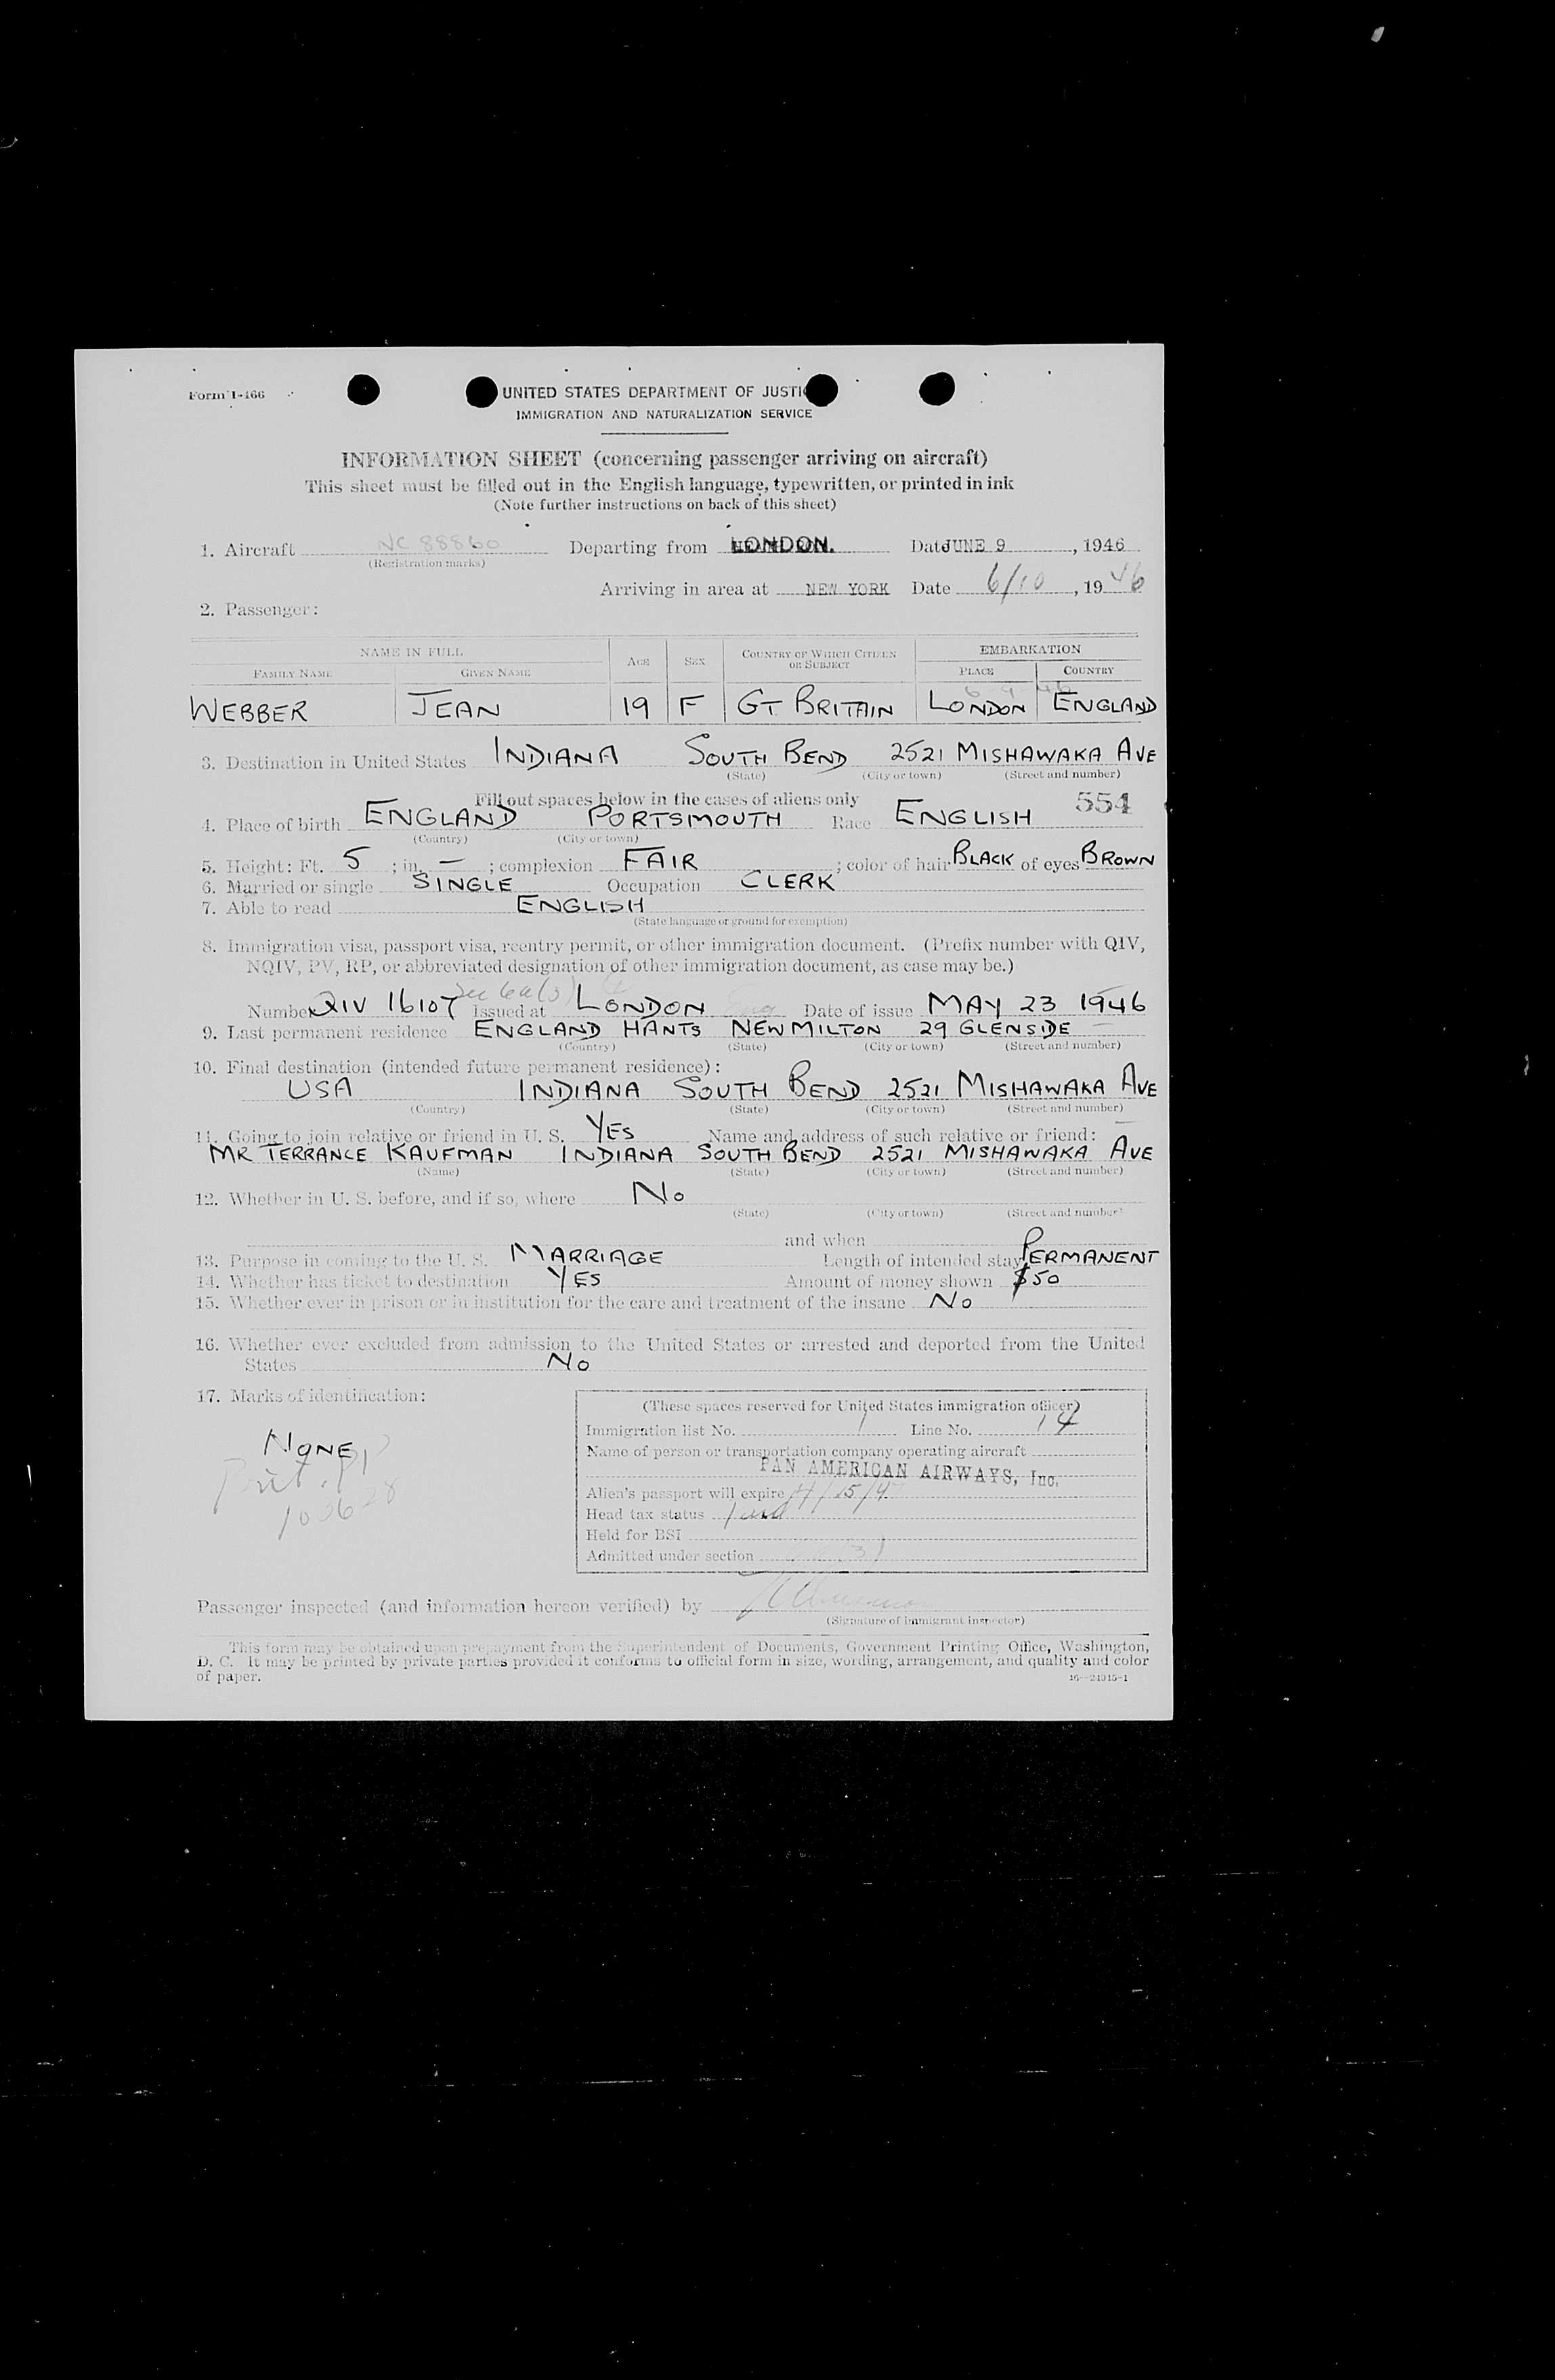 Form I-466
UNITED STATES DEPARTMENT OF JUSTIC
IMMIGRATION AND NATURALIZATION SERVICE
INFORMATION SHEET (concerning passenger arriving on aircraft)
This sheet must be filled out in the English language, typewritten, or printed in ink
(Note further instructions on back of this sheet)
1. Aircraft NC 88860 Departing from LONDON. Date JUNE 9, 1946
(Registration marks)
Arriving in area at NEW YORK Date 6/10, 1946
2. Passenger:
NAME IN FULL AGE SEX COUNTRY OF WHICH CITIZEN OR SUBJECT EMBARKATION
FAMILY NAME GIVEN NAME PLACE COUNTRY
6 9 46
WEBBER JEAN 19 F GT BRITAIN LONDON ENGLAND
3. Destination in United States INDIANA SOUTH BEND 2521 MISHAWAKA AVE
(State) (City or town) (Street and number)
Fill out spaces below in the cases of aliens only 554
4. Place of birth ENGLAND PORTSMOUTH Race ENGLISH
(Country) (City or town)
5. Height: Ft. 5 ; in. — ; complexion FAIR ; color of hair BLACK of eyes BROWN
6. Married or single SINGLE Occupation CLERK
7. Able to read ENGLISH
(State language or ground for exemption)
8. Immigration visa, passport visa, reentry permit, or other immigration document. (Prefix number with QIV,
NQIV, PV, RP, or abbreviated designation of other immigration document, as case may be.)
Sec 6a(3)
Number QIV 16107 Issued at LONDON Eng Date of issue MAY 23 1946
9. Last permanent residence ENGLAND HANTS NEW MILTON 29 GLENSIDE
(Country) (State) (City or town) (Street and number)
10. Final destination (intended future permanent residence):
USA INDIANA SOUTH BEND 2521 MISHAWAKA AVE
(Country) (State) (City or town) (Street and number)
11. Going to join relative or friend in U. S. YES Name and address of such relative or friend:
MR TERRANCE KAUFMAN INDIANA SOUTH BEND 2521 MISHAWAKA AVE
(Name) (State) (City or town) (Street and number)
12. Whether in U. S. before, and if so, where NO
(State) (City or town) (Street and number)
and when
13. Purpose in coming to the U. S. MARRIAGE Length of intended stay PERMANENT
14. Whether has ticket to destination YES Amount of money shown $50
15. Whether ever in prison or in institution for the care and treatment of the insane NO
16. Whether ever excluded from admission to the United States or arrested and deported from the United
States NO
17. Marks of identification:
NONE
Brit. PP
103628
(These spaces reserved for United States immigration officer)
Immigration list No. 1 Line No. 14
Name of person or transportation company operating aircraft
PAN AMERICAN AIRWAYS, Inc.
Alien's passport will expire 4/25/47
Head tax status
Held for BSI
Admitted under section
Passenger inspected (and information hereon verified) by
(Signature of immigrant inspector)
This form may be obtained upon prepayment from the Superintendent of Documents, Government Printing Office, Washington,
D. C. It may be printed by private parties provided it conforms to official form in size, wording, arrangement, and quality and color
of paper. 16—24915-1